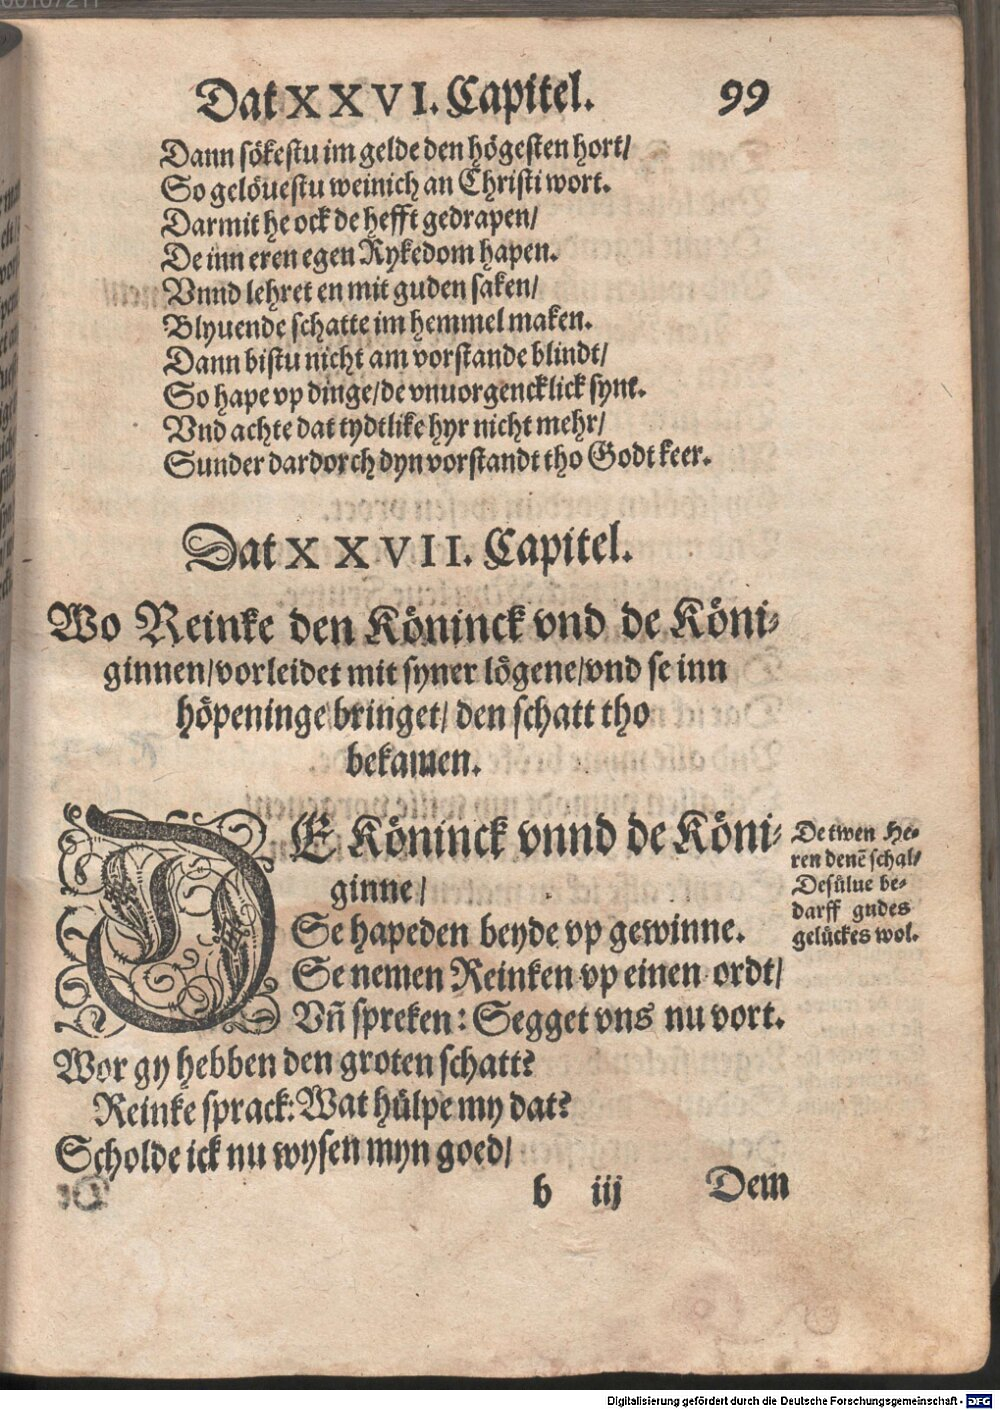 Dat XXVI. Capitel. 99
Dann sökestu im gelde den högesten hort/
So gelöuestu weinich an Christi wort.
Darmit he ock de hefft gedrapen/
De inn eren egen Rykedom hapen.
Vnnd lehret en mit guden saken/
Blyuende schatte im hemmel maken.
Dann bistu nicht am vorstande blindt/
So hape vp dinge/de vnuorgencklick synt.
Vnd achte dat tydtlike hyr nicht mehr/
Sunder dardorch dyn vorstandt tho Godt keer.
Dat XXVII. Capitel.
Wo Reinke den Köninck vnd de Köni-
ginnen/vorleidet mit syner lögene/vnd se inn
höpeninge bringet/ den schatt tho
bekamen.
DE Köninck vnnd de Köni-
ginne/
Se hapeden beyde vp gewinne.
Se nemen Reinken vp einen ordt/
Vñ spreken: Segget vns nu vort.
Wor gy hebben den groten schatt?
Reinke sprack: Wat hülpe my dat?
Scholde ick nu wysen myn goed/
De twen He-
ren denẽ schal/
Desülue be-
darff gudes
gelückes wol.
b iij Dem
Digitalisierung gefördert durch die Deutsche Forschungsgemeinschaft - DFG